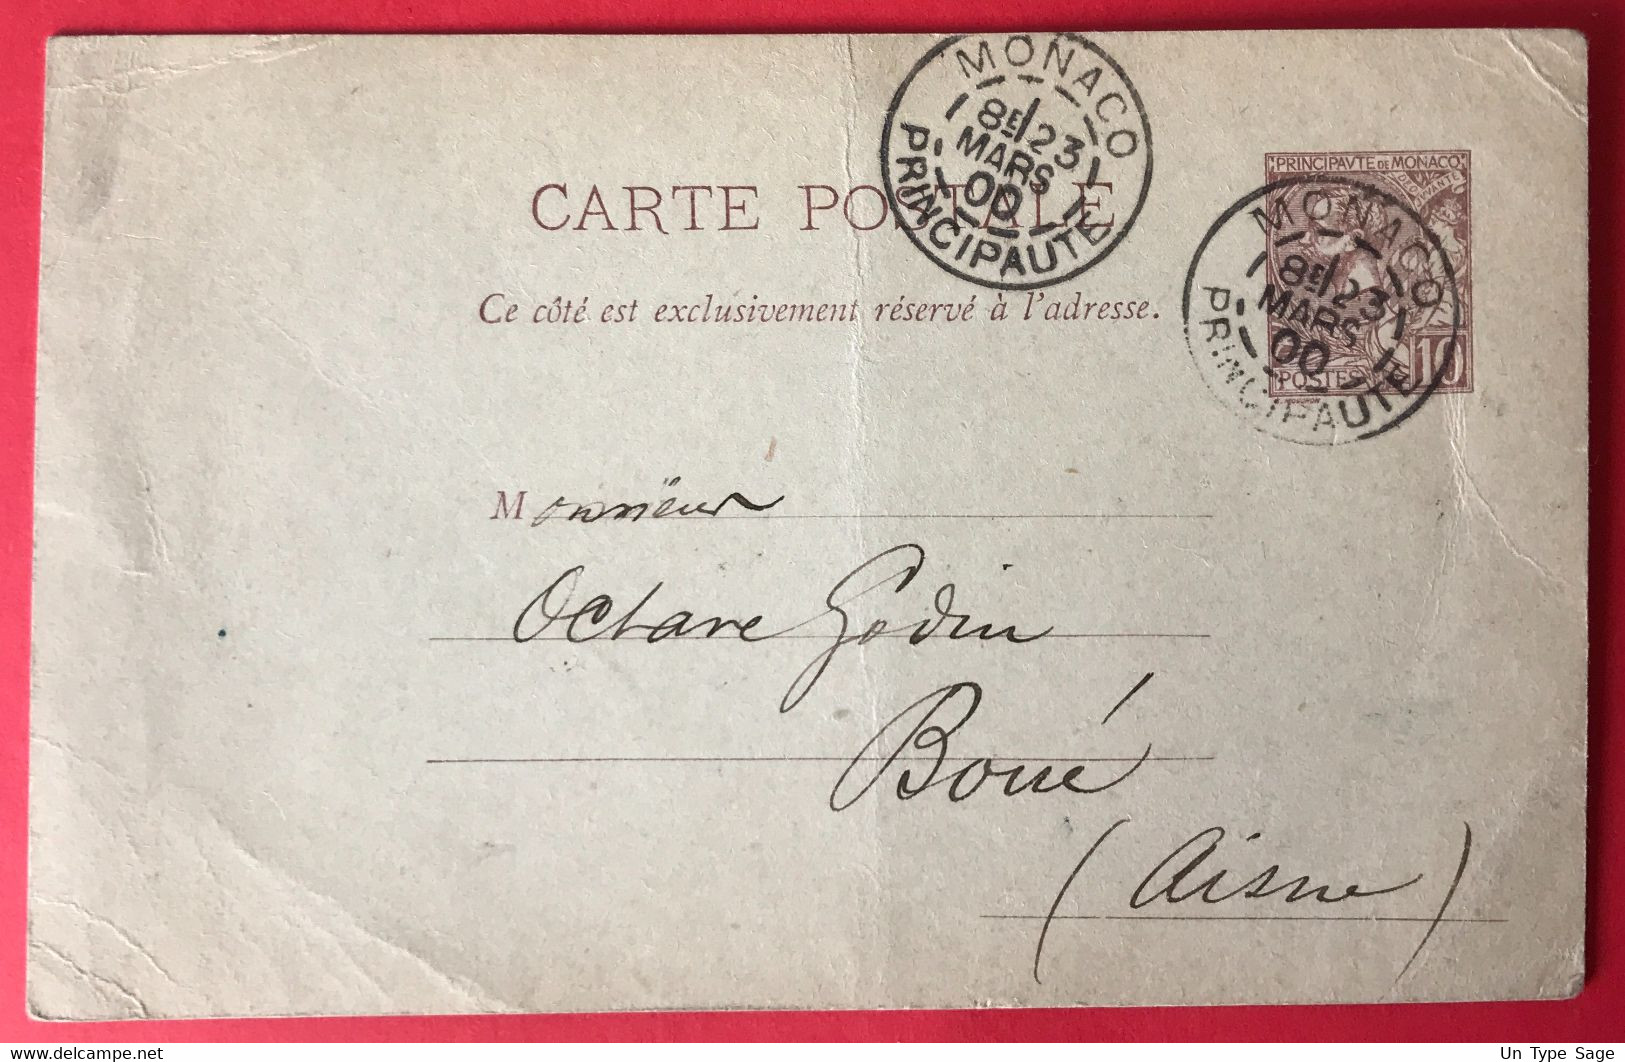 MONACO
8E/23
MARS
00
PRINCIPAUTE
PRINCIPAVTE DE MONACO
MONACO
8E/23
MARS
00
PRINCIPAUTE
POSTES 10
MOUCHON
CARTE POSTALE
Ce côté est exclusivement réservé à l'adresse.
Monsieur
Octave Godin
Boué
(Aisne)
Un Type Sage